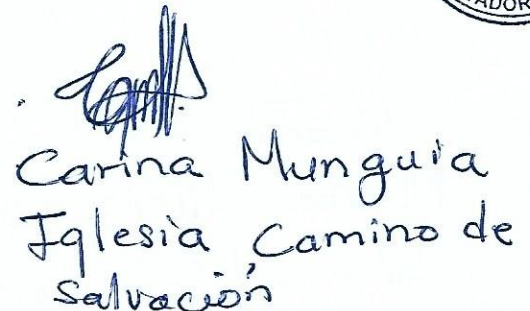 Carina Munguia
Iglesia Camino de
Salvación